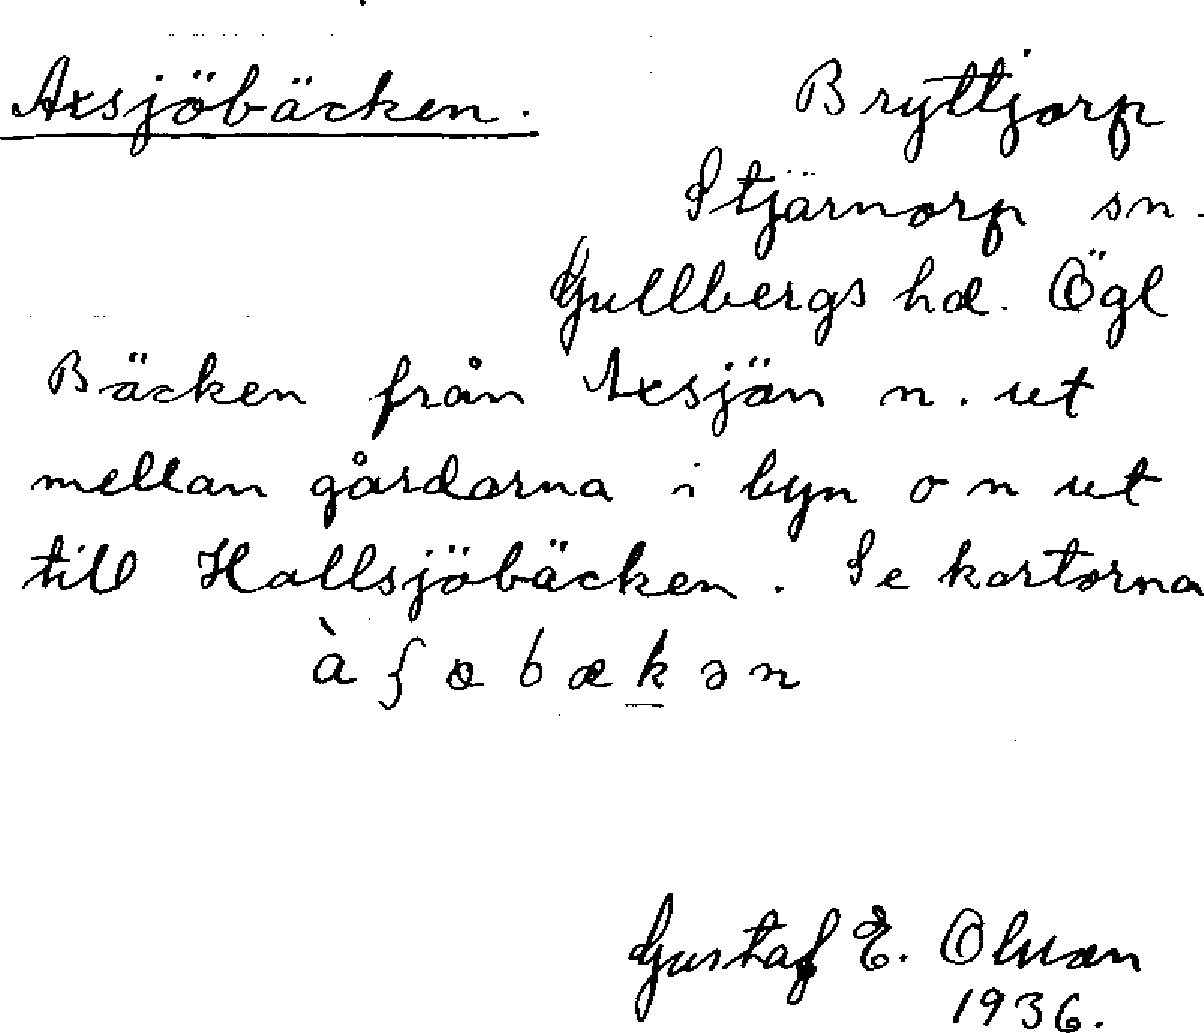 Axsjöbäcken.
Bryttjorp
Stjärnorp sn.
Gullbergs hd. Ögl
Bäcken från Axsjön n. ut
mellan gårdarna i byn o n ut
till Hallsjöbäcken. Se kartorna
àʃɵbækən
Gustaf E. Olsson
1936.